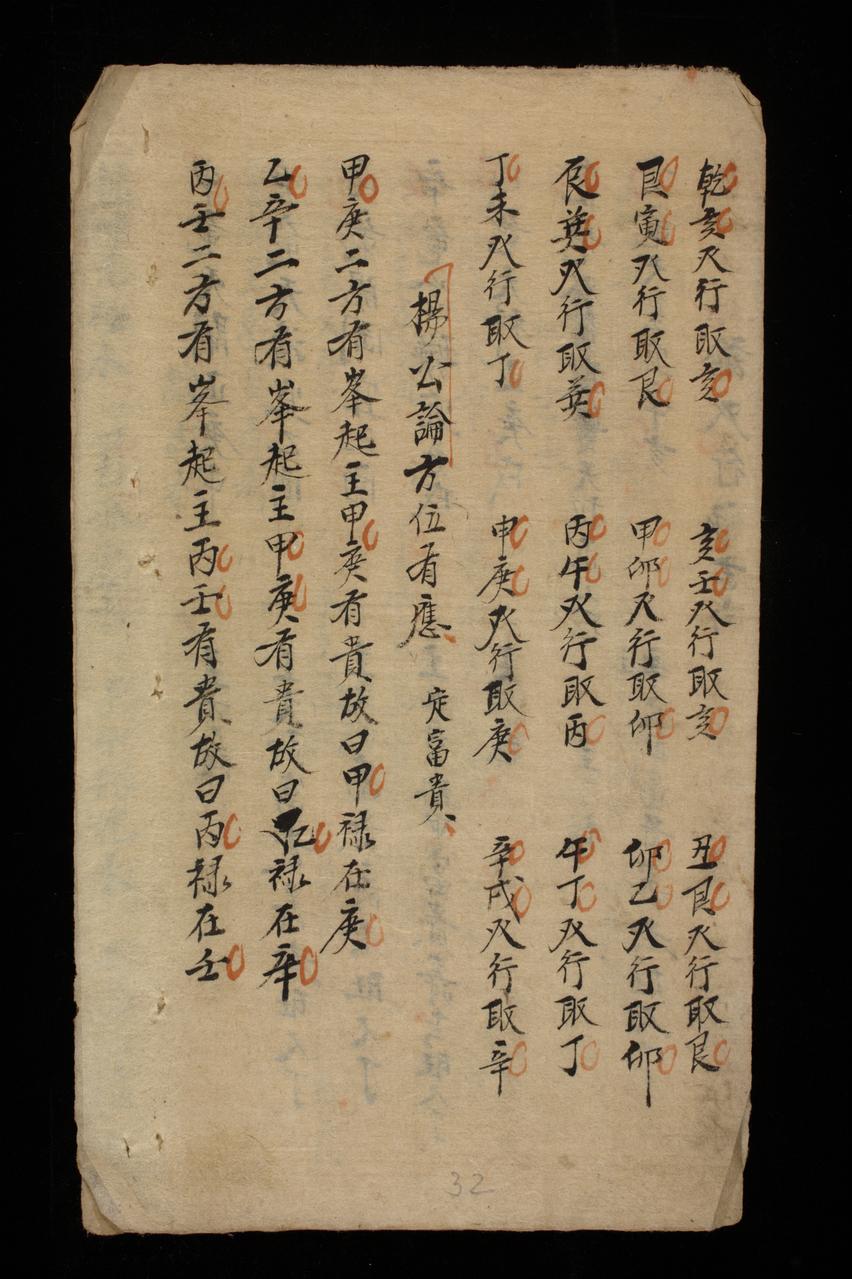 乾亥双行取亥　亥壬双行取亥　丑艮双行取艮
艮寅双行取艮　甲卯双行取卯　卯乙双行取卯
辰巽双行取巽　丙午双行取丙　午丁双行取丁
丁未双行取丁　申庚双行取庚　辛戌双行取辛
楊公論方位有應　定富貴
甲庚二方有峯起主甲庚有貴故曰甲禄在庚
乙辛二方有峯起主甲庚有貴故曰乙禄在辛
丙壬二方有峯起主丙壬有貴故曰丙禄在壬
32